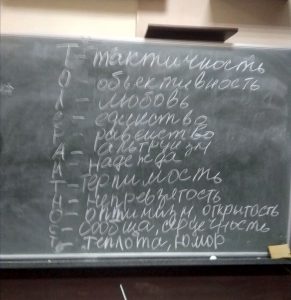 Т - тактичность
О - объективность
Л - любовь
Е - единство
Р - равенство
А - альтруизм
Н - надежда
Т - терпимость
Н - непредвзятость
О - оптимизм, открытость
С - свобода, сердечность
Т - теплота, юмор